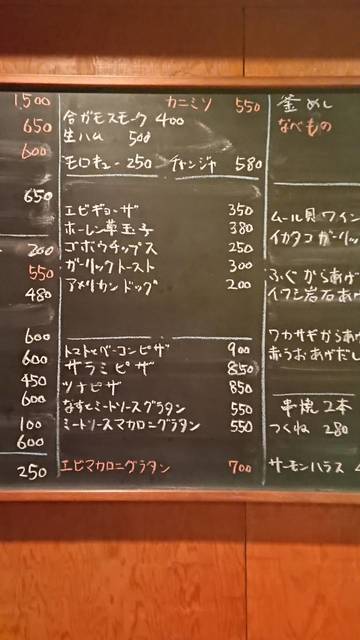 1,500
650
600
650
200
550
480
600
600
450
600
100
600
250
カニミソ 550
合ガモスモーク 400
生ハム 500
モロキュー 250 チャンジャ 580
エビギョーザ 350
ホーレン草玉子 380
ゴボウチップス 250
ガーリックトースト 300
アメリカンドッグ 200
トマトとベーコンピザ 900
サラミピザ 850
ツナピザ 850
なすとミートソースグラタン 550
ミートソースマカロニグラタン 550
エビマカロニグラタン 700
釜めし
なべもの
ムール貝ワイン
イカタコガーリッ
ふぐからあげ
イワシ岩石あ
ワカサギからあげ
あげだし
串焼 2本
つくね 280
サーモンハラス